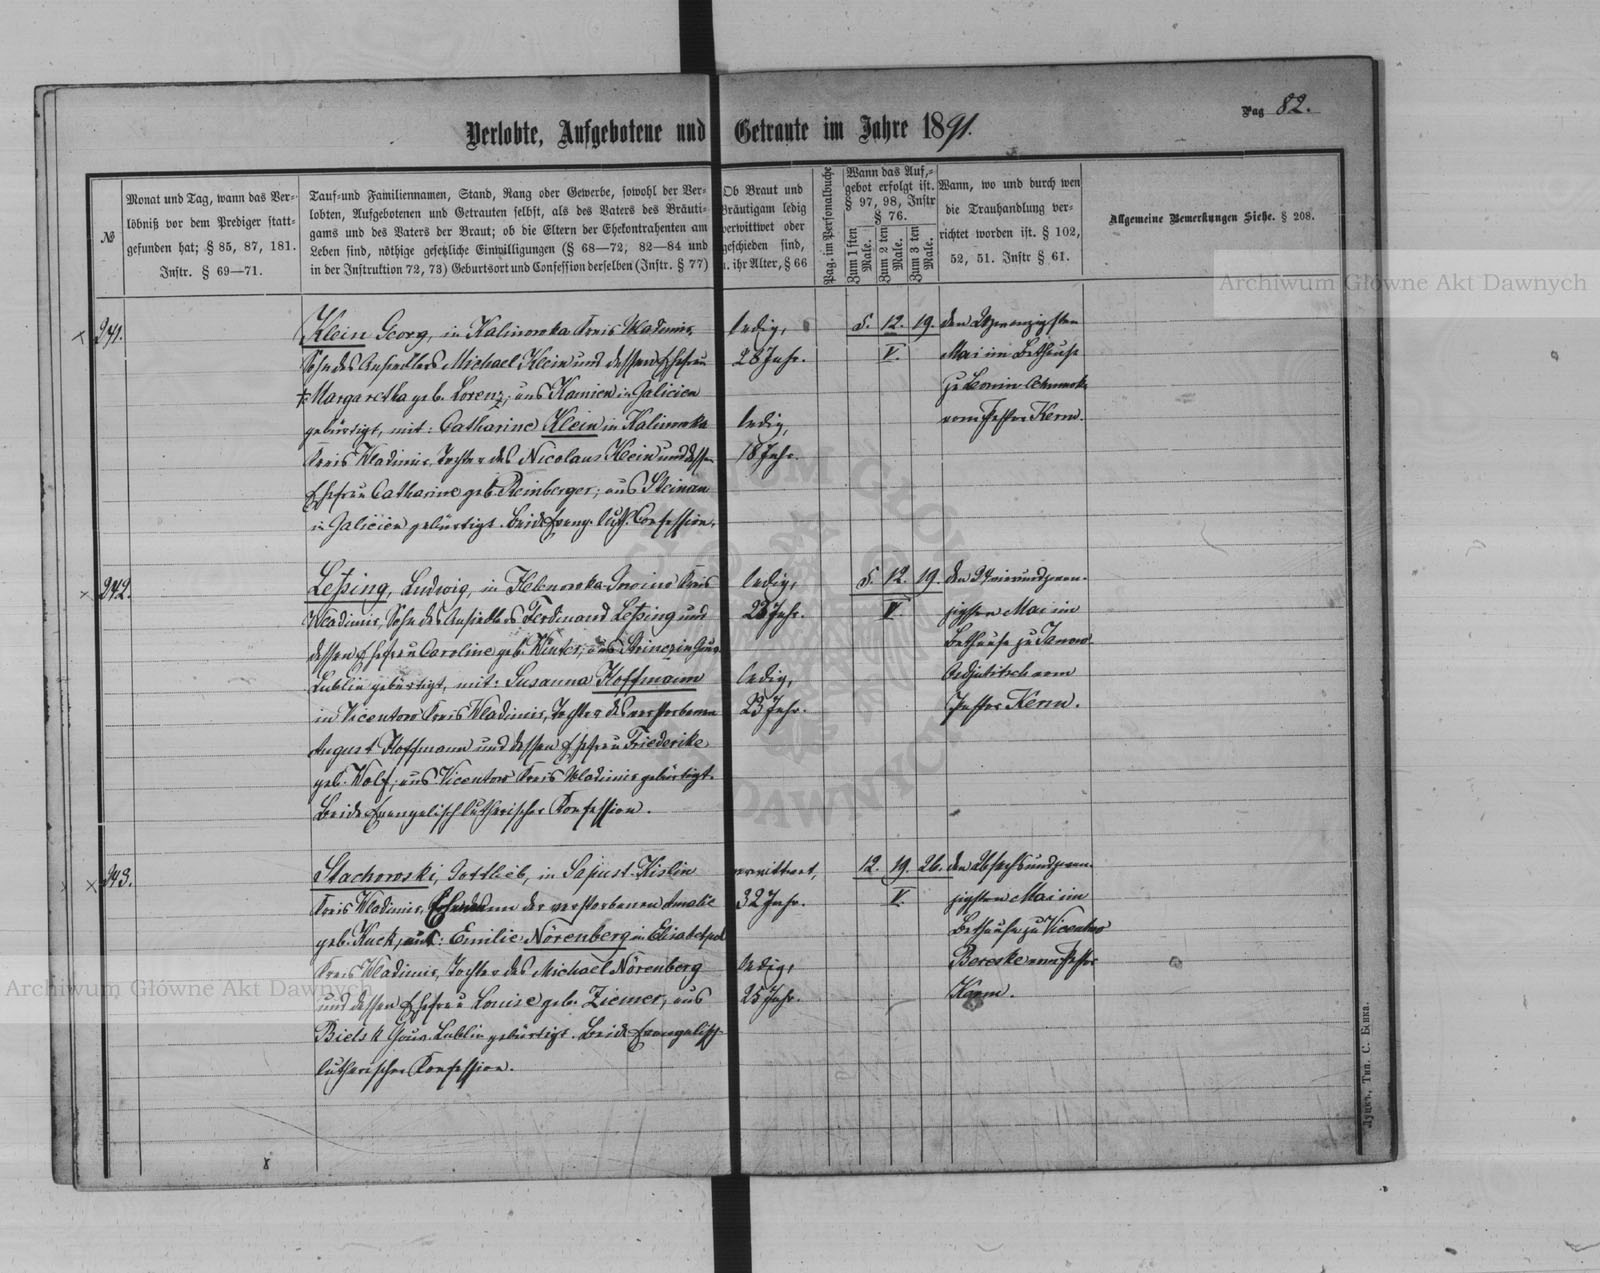 Pag 82.
Verlobte, Aufgebotene und Getraute im Jahre 1891.
№
Monat und Tag, wann das Ver-
löbniß vor dem Prediger statt-
gefunden hat; § 85, 87, 181.
Instr. § 69—71.
Tauf-und Familiennamen, Stand, Rang oder Gewerbe, sowohl der Ver-
lobten, Aufgebotenen und Getrauten selbst, als des Vaters des Bräuti-
gams und des Vaters der Braut; ob die Eltern der Ehekontrahenten am
Leben sind, nöthige gesetzliche Einwilligungen (§ 68—72, 82—84 und
in der Instruktion 72, 73) Geburtsort und Confession derselben (Instr. § 77)
Ob Braut und
Bräutigam ledig
verwittwet oder
geschieden sind,
u. ihr Alter, § 66
Pag. im Personalbuche
Wann das Auf-
gebot erfolgt ist.
§ 97, 98, Instr
§ 76.
Zum 1 sten Male.
Zum 2 ten Male.
Zum 3 ten Male.
Wann, wo und durch wen
die Trauhandlung ver-
richtet worden ist. § 102,
52, 51. Instr § 61.
Allgemeine Bemerkungen Siehe. § 208.
Archiwum Główne Akt Dawnych
241.
Klein Georg, in Kalinowka Kreis Wladimir,
Sohn des Ansiedlers Michael Klein und dessen Ehefrau
Margaretha geb. Lorenz, aus Kamien in Galicien
gebürtigt, mit: Catharine Klein in Kalinowka
Kreis Wladimir, Tochter des Nicolaus Klein und dessen
Ehefrau Catharine geb. Reinberger, aus Steinau
in Galicien gebürtigt. Beide Evang. luth. Confession.
ledig,
28 Jahr.
ledig,
18 Jahr.
5. 12. 19.
V.
den
Mai im Bethause
zu
vom Pastor Kern.
242.
Leßing, Ludwig, in Helenowka Kreis
Wladimir, Sohn des Ansiedlers Ferdinand Leßing und
dessen Ehefrau Caroline geb. Winter, aus Gouv.
Lublin gebürtigt, mit: Susanna Hoffmann
in Vicentow Kreis Wladimir, Tochter des verstorbenen
August Hoffmann und dessen Ehefrau Friederike
geb. Wolf, aus Vicentow Kreis Wladimir gebürtigt.
Beide Evangelisch lutherischer Konfession.
ledig,
23 Jahr.
ledig,
23 Jahr.
5. 12. 19.
V.
den 24 vierundzwan-
zigsten Mai im
Bethause zu Janow-
vom
Pastor Kern.
243.
Stachowski, Gottlieb, in Sapust-Kislin
Kreis Wladimir, der verstorbenen Amalie
geb. Kuck, mit: Emilie Nörenberg in Elisabetpol
Kreis Wladimir, Tochter des Michael Nörenberg
und dessen Ehefrau Louise geb. Ziemer, aus
Bielsk Gouv. Lublin gebürtigt. Beide Evangelisch
lutherischer Konfession.
verwittwet,
32 Jahr.
ledig,
25 Jahr.
12. 19. 26.
V.
den 26 sechsundzwan-
zigsten Mai im
Bethause zu Vicentow
Bereske vom Pastor
Kern.
Archiwum Główne Akt Dawnych
Луцкъ, Тип. С. Бівка.